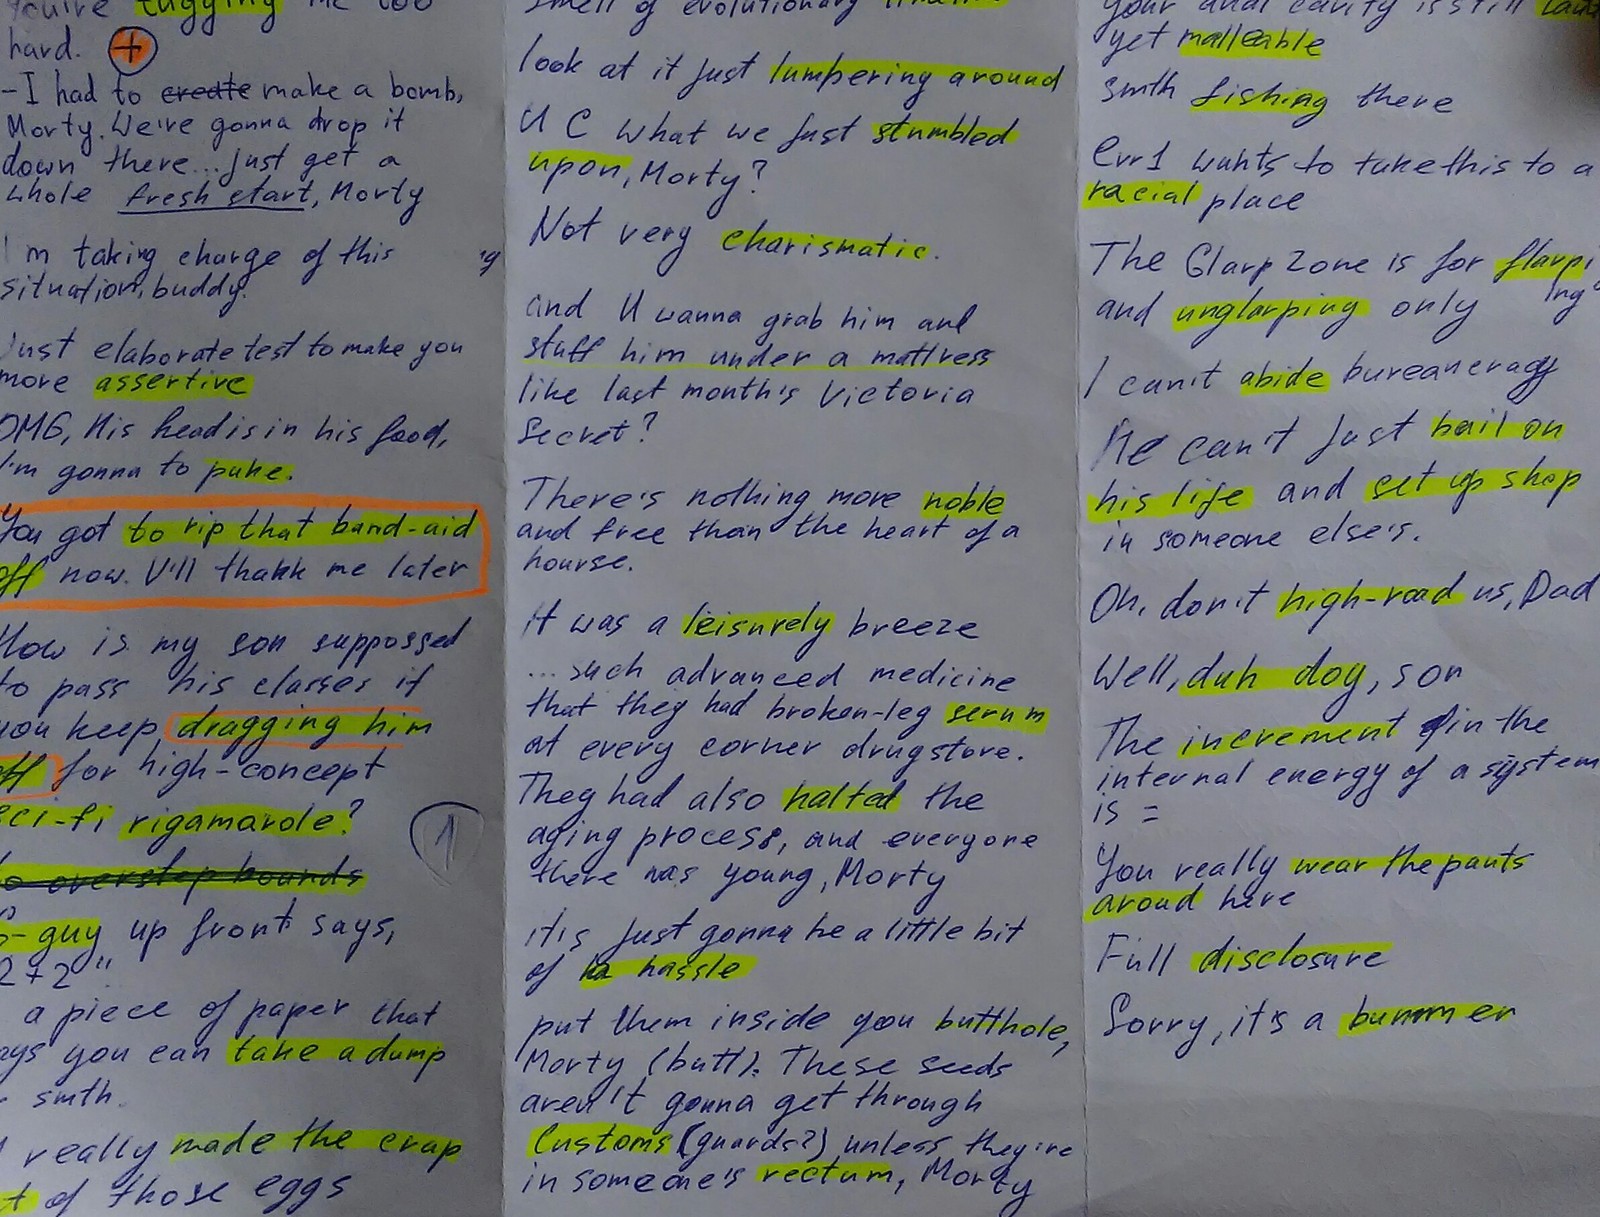 you're tugging me too
hard. +
- I had to create make a bomb,
Morty. We're gonna drop it
down there... just get a
whole fresh start, Morty
I'm taking charge of this
situation, buddy.
Just elaborate test to make you
more assertive
OMG, His head is in his food,
I'm gonna to puke.
You got to rip that band-aid
off now. U'll thank me later
How is my son suppossed
to pass his classes if
you keep dragging him
off for high-concept
sci-fi rigamarole?
1
to overstep bounds
guy up front says,
2+2"
a piece of paper that
says you can take a dump
smth.
I really made the crap
of those eggs
smell of evolutionary
look at it just lumbering around
U C what we just stumbled
upon, Morty?
Not very charismatic.
and U wanna grab him and
stuff him under a mattress
like last month's Victoria
Secret?
There's nothing more noble
and free than the heart of a
hourse.
it was a leisurely breeze
...such advanced medicine
that they had broken-leg serum
at every corner drugstore.
They had also halted the
aging process, and everyone
there was young, Morty
it's just gonna be a little bit
of a hassle
put them inside you butthole,
Morty (butt). These seeds
aren't gonna get through
Customs (guards?) unless they're
in someone's rectum, Morty
your anal cavity is still
yet malleable
smth fishing there
Evr1 wants to take this to a
racial place
The Glarp Zone is for flarpi
ng
and unglarping only
I can't abide bureaucracy
He can't just bail on
his life and set up shop
in someone else's.
Oh, don't high-road us, Dad
Well, duh doy, son
The increment in the
internal energy of a system
is =
You really wear the pants
aroud here
Full disclosure
Sorry, it's a bummer